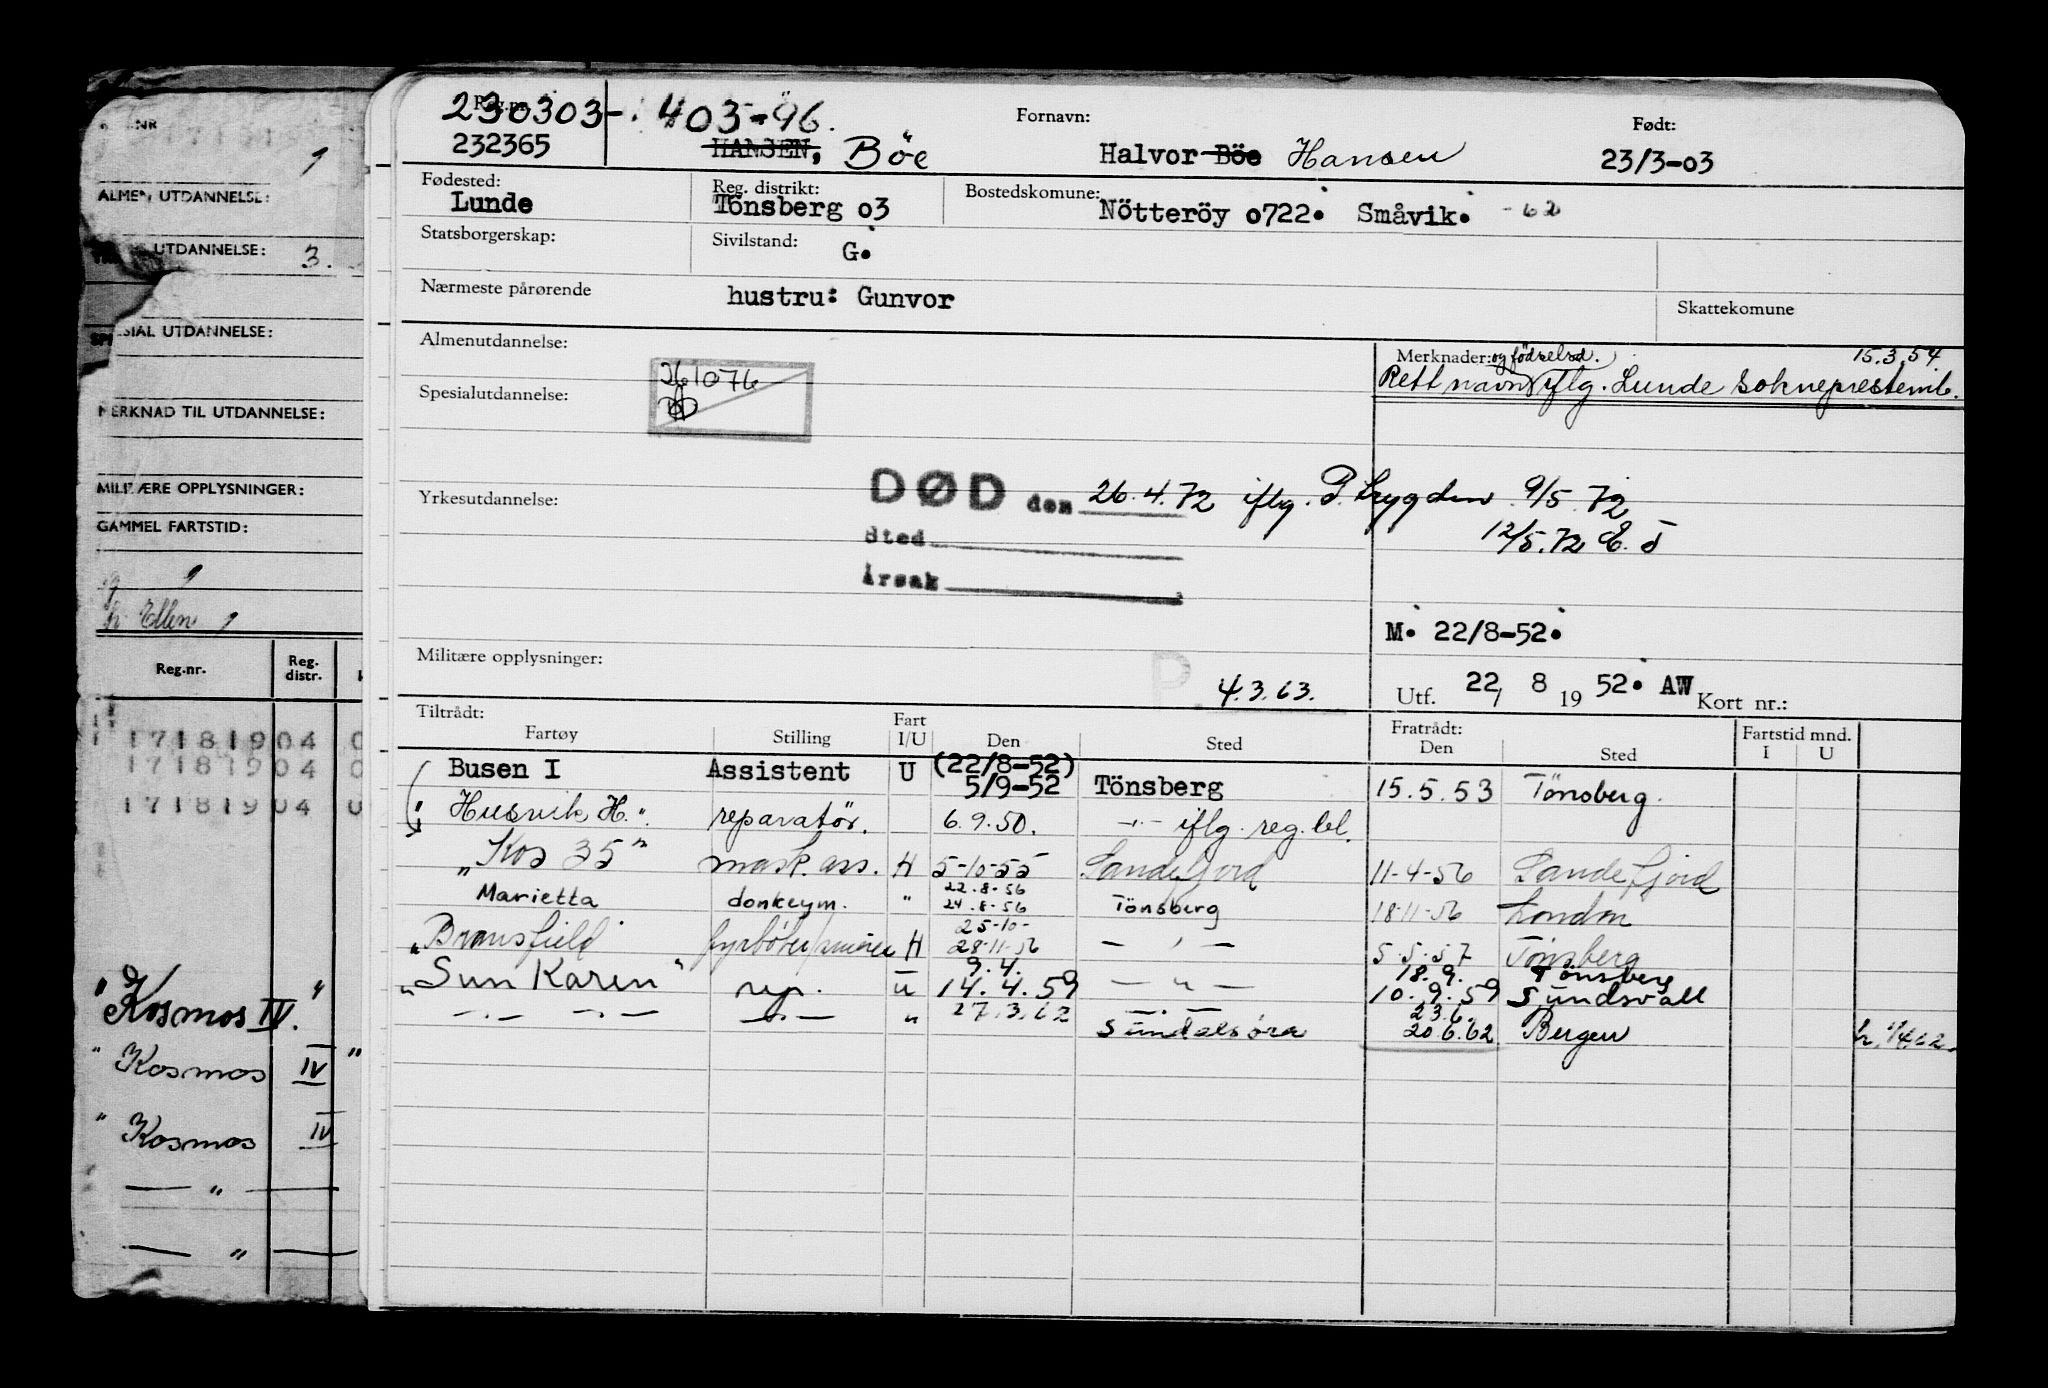 Reg.nr.
230303-. 403-96.
232365
HANSEN, Böe
Fornavn:
Halvor Böe Hansen
Født:
23/3-03
Fødested:
Lunde
Reg. distrikt:
Tönsberg o3
Bostedskomune:
Nötteröy o722. Småvik. -62
Statsborgerskap:
Sivilstand:
G.
Nærmeste pårørende
hustru: Gunvor
Skattekomune
Almenutdannelse:
261076
Spesialutdannelse:
Merknader: og födselsd. 15.3.54
Rett navn iflg. Lunde sokneprestemb.
Yrkesutdannelse:
DØD den 26.4.72 iflg. P. trygden 9/5.72
12/5.72
Sted
Årsak
M. 22/8-52.
Militære opplysninger:
P
4.3.63.
Utf. 22/ 8 19 52. AW Kort nr.:
Tiltrådt:
Fartøy
Stilling
Fart
I/U
Den
Sted
Fratrådt:
Den
Sted
Fartstid mnd.
I U
Busen I Assistent U (22/8-52)
5/9-52 Tönsberg 15.5.53 Tönsberg.
"Husvik H." reparatör. 6.9.50. -"- iflg. reg.bl.
"Kos 35" mask.ass. H 5-10-55 Sandefjord 11-4-56 Sandefjord
Marietta donkeym. " 22.8-56
24.8-56 Tönsberg 18-11-56 London
"Bransfield fyrböter H 25-10-
28-11-56 - " - 5.5.57 Tönsberg
"Sun Karen" rep. U 9.4.
14.4.59 - " - 18.9. Tönsberg
10.9.59 Sundsvall
-"- -"- -"- " 27.3.62 -"-
Sundalsöra 23.6.
20.6.62 Bergen
ALMEN UTDANNELSE:
UTDANNELSE: 3.
SPESIAL UTDANNELSE:
MERKNAD TIL UTDANNELSE:
MILITÆRE OPPLYSNINGER:
GAMMEL FARTSTID:
Ellen
Reg.nr.
Reg.
distr.
17181904
17181904
17181904
"Kosmos IV."
"Kosmos IV"
"Kosmos IV
— " —
— " —